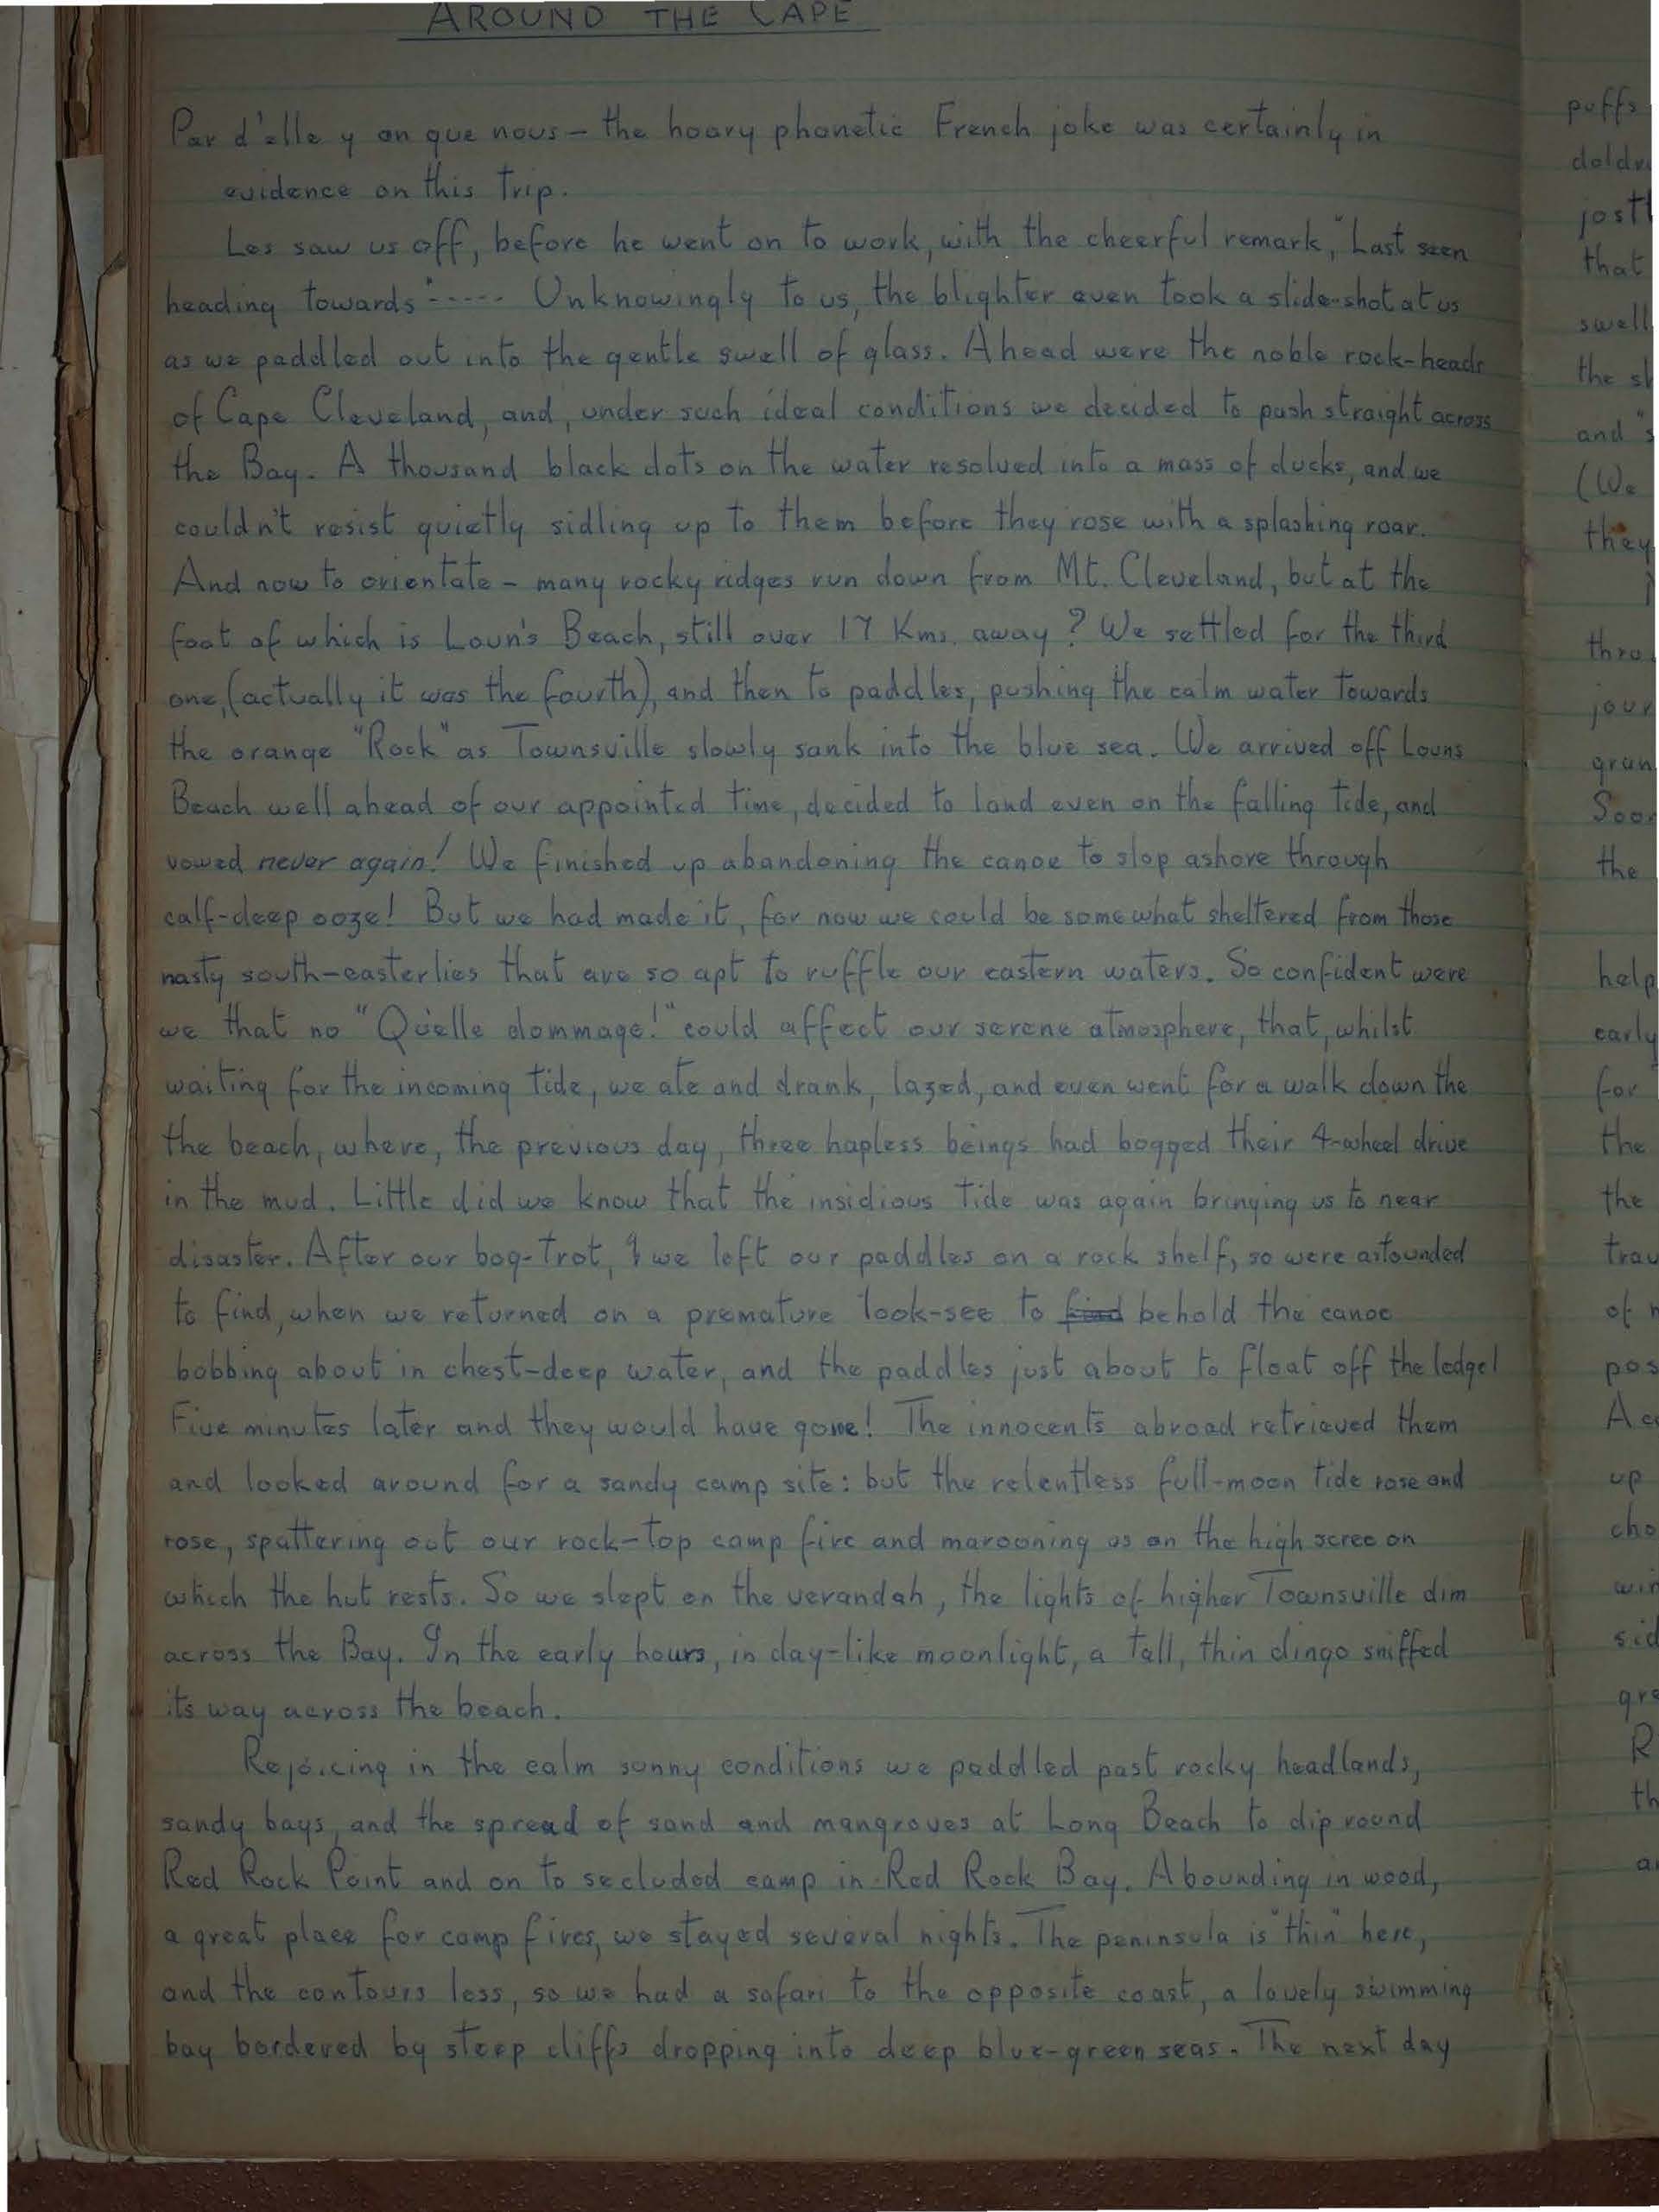 AROUND THE CAPE
Par d'elle y on que nous – the hoary phonetic French joke was certainly in
evidence on this trip.
Les saw us off, before he went on to work, with the cheerful remark, "Last seen
heading towards"----- Unknowingly to us, the blighter even took a slide-shot at us
as we paddled out into the gentle swell of glass. Ahead were the noble rock-heads
of Cape Cleveland, and, under such ideal conditions we decided to push straight across
the Bay. A thousand black dots on the water resolved into a mass of ducks, and we
couldn't resist quietly sidling up to them before they rose with a splashing roar.
And now to orientate – many rocky ridges run down from Mt. Cleveland, but at the
foot of which is Loun's Beach, still over 17 Kms. away? We settled for the third
one, (actually it was the fourth), and then to paddles, pushing the calm water towards
the orange "Rock" as Townsville slowly sank into the blue sea. We arrived off Louns
Beach well ahead of our appointed time, decided to land even on the falling tide, and
vowed never again! We finished up abandoning the canoe to slop ashore through
calf-deep ooze! But we had made it, for now we could be somewhat sheltered from those
nasty south-easterlies that are so apt to ruffle our eastern waters. So confident were
we that no "Qúelle dommage!" could affect our serene atmosphere, that, whilst
waiting for the incoming tide, we ate and drank, lazed, and even went for a walk down the
the beach, where, the previous day, three hapless beings had bogged their 4-wheel drive
in the mud. Little did we know that the insidious tide was again bringing us to near
disaster. After our bog-trot, we left our paddles on a rock shelf, so were astounded
to find, when we returned on a premature look-see to find behold the canoe
bobbing about in chest-deep water, and the paddles just about to float off the ledge!
Five minutes later and they would have gone! The innocents abroad retrieved them
and looked around for a sandy camp site: but the relentless full-moon tide rose and
rose, spattering out our rock-top camp fire and marooning us on the high scree on
which the hut rests. So we slept on the verandah, the lights of higher Townsville dim
across the Bay. In the early hours, in day-like moonlight, a tall, thin dingo sniffed
its way across the beach.
Rejoicing in the calm sunny conditions we paddled past rocky headlands,
sandy bays, and the spread of sand and mangroves at Long Beach to dip round
Red Rock Point and on to secluded camp in Red Rock Bay. Abounding in wood,
a great place for camp fires, we stayed several nights. The peninsula is "thin" here,
and the contours less, so we had a safari to the opposite coast, a lovely swimming
bay bordered by steep cliffs dropping into deep blue-green seas. The next day
puffs
that
swell
and
(We
they
the
help
early
for
the
the
of
up